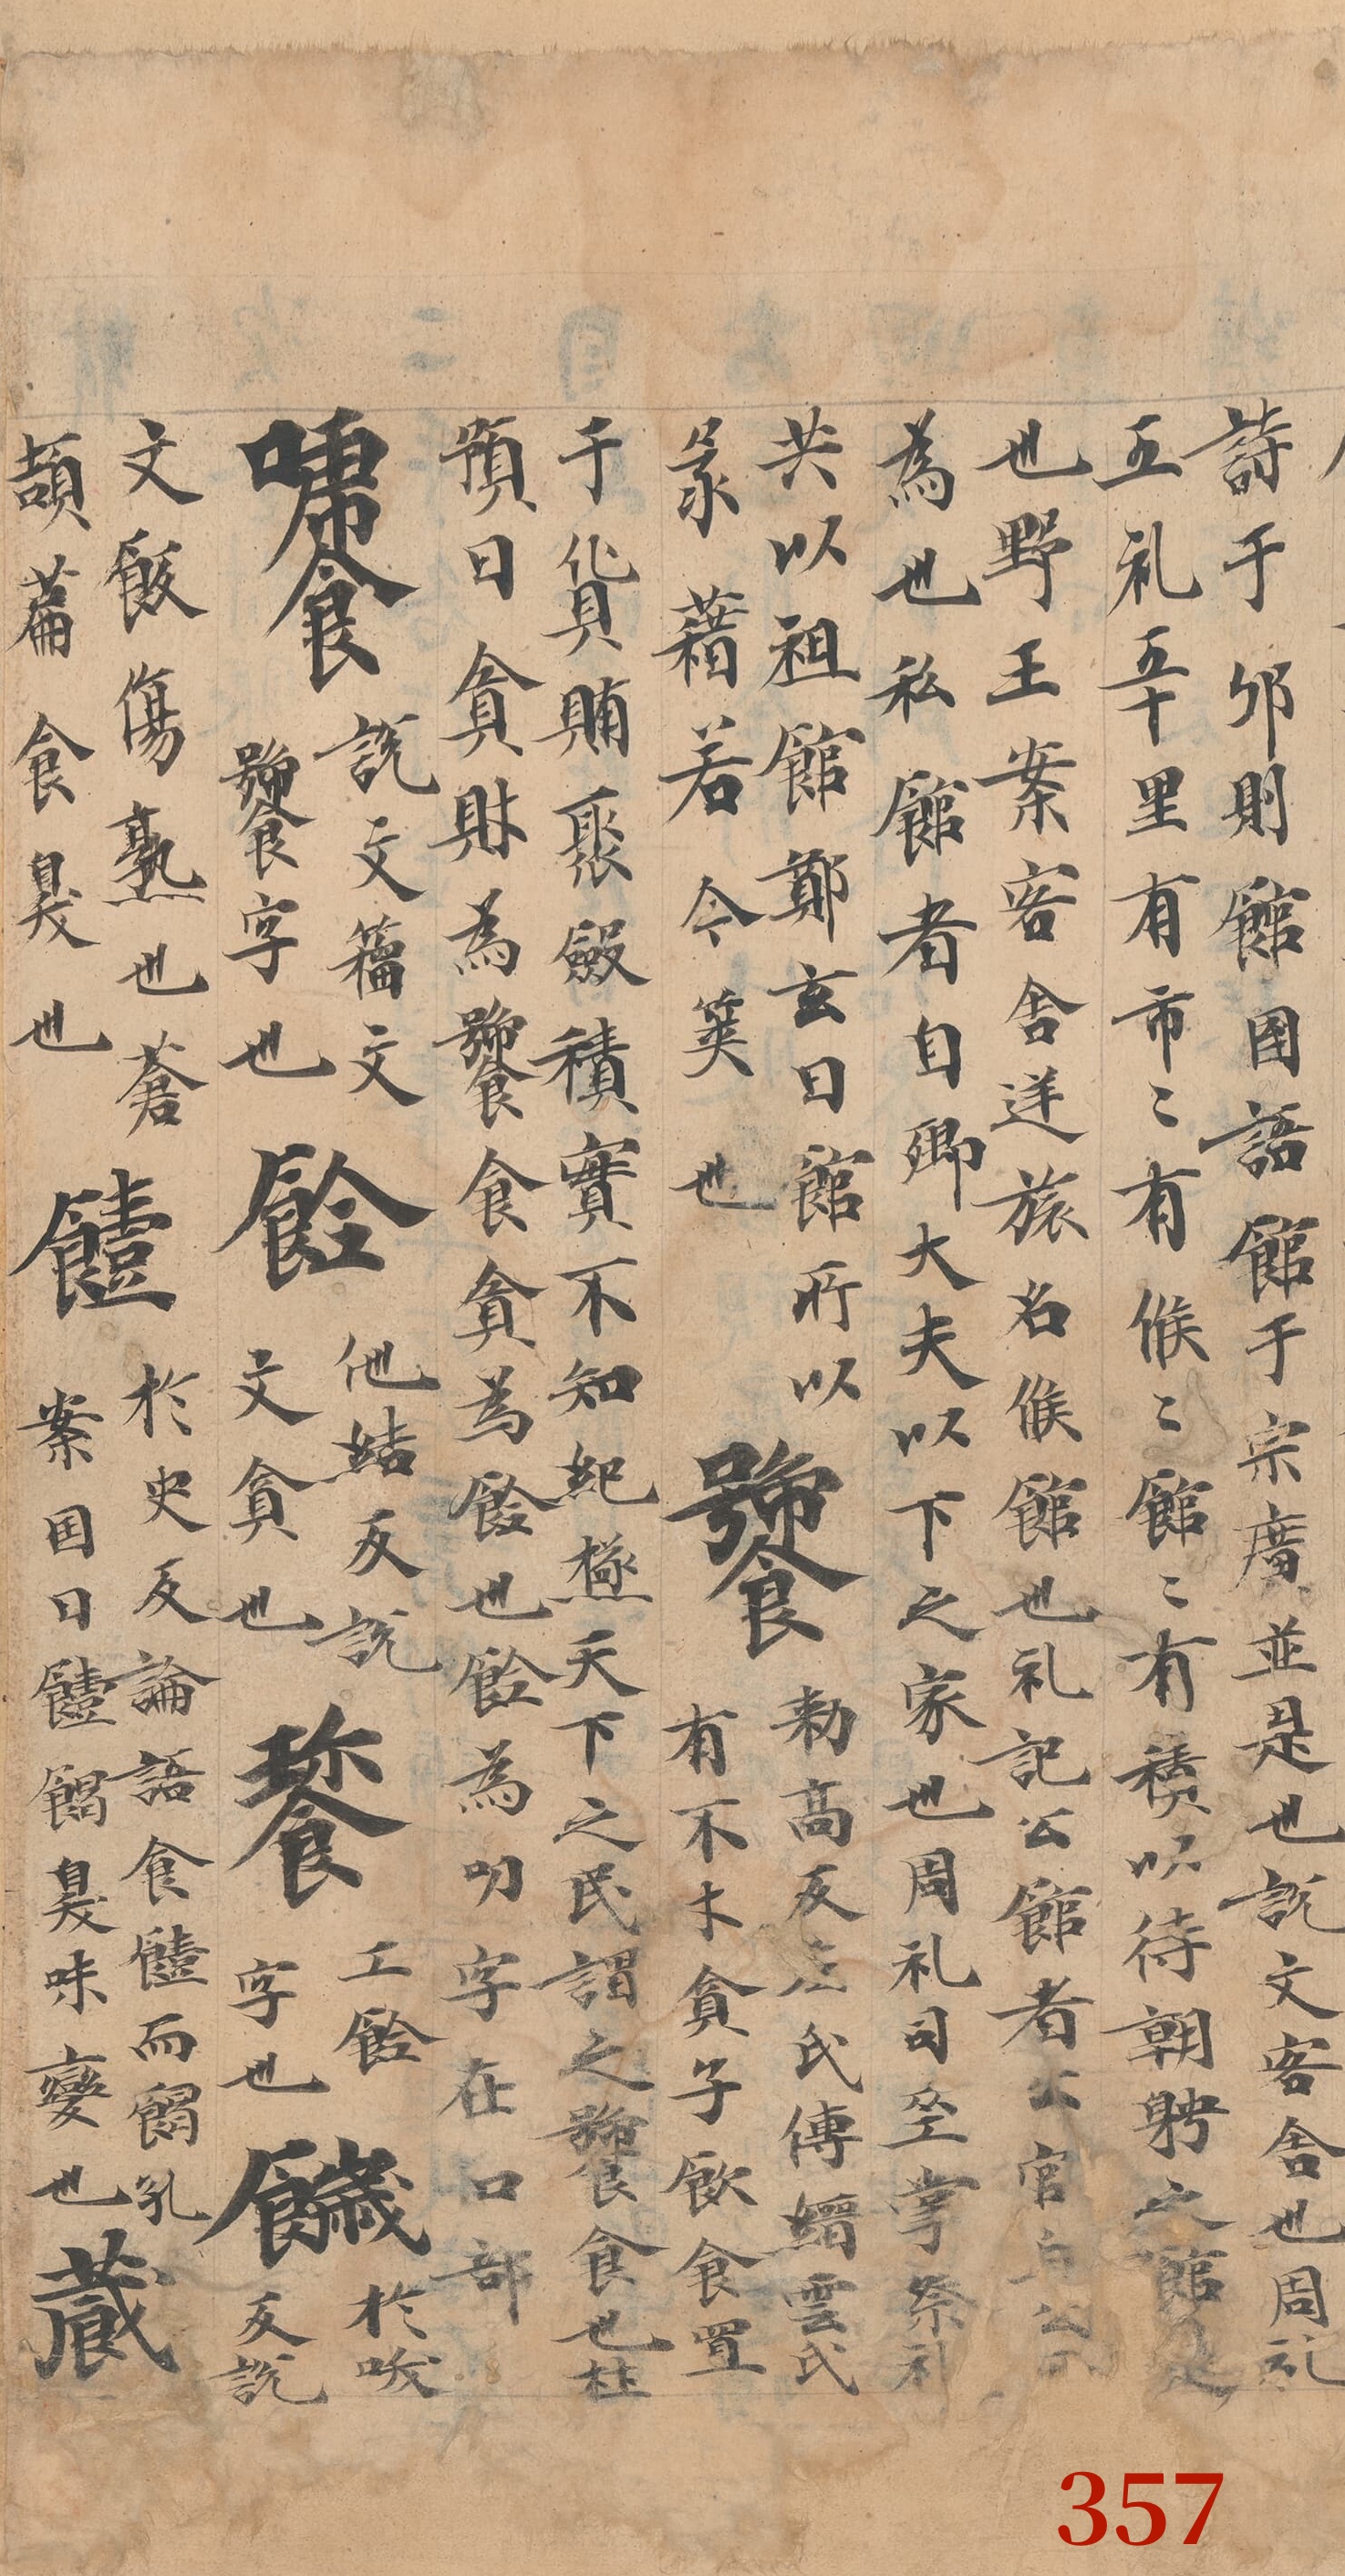 詩于邠則館国語館于宗廣並是也說文客舎也周礼
五礼五十里有市〻有候〻館〻有積以待朝聘之館是
也野王案客舎逆旅名候館也礼記公館者公官与公所
為也私館者自卿大夫以下之家也周礼司巫掌祭礼
共以祖館鄭玄曰館所以
篆藉若今筐也
饕
勑高反左氏傳縉雲氏
有不才貪子飲食置
于貨賄聚斂積實不知紀極天下之民謂之饕食也杜
預曰貪財為饕食食貪為餮也飻為叨字在口部
𩞀
說文籀文
饕字也
飻
他結反說
文貪也
餮
工飻
字也
饖
於吠
反説
文飯傷熱也蒼
頡篇食臭也
饐
於吏反論語食饐而餲孔
案国曰饐餲臭味變也
蔵
357